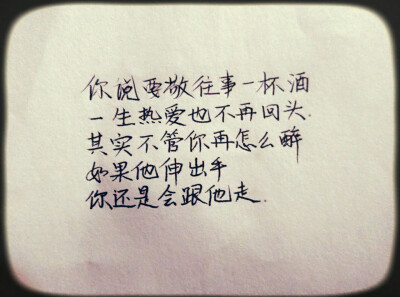 你说要敬往事一杯酒
一生热爱也不再回头.
其实不管你再怎么醉
如果他伸出手
你还是会跟他走.